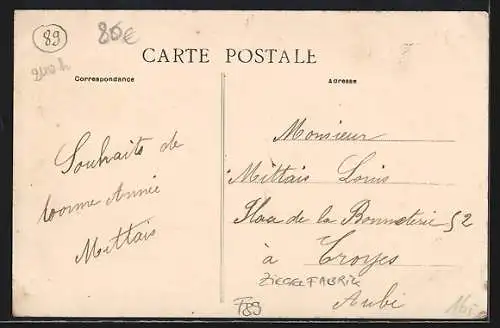 89
86€
CARTE POSTALE
Correspondance
Adresse
Souhaits de
bonne Année
Mittais
Monsieur
Mittais Louis
Place de la Bonneterie 52
à Troyes
ZIEGELFABRIK
Aube
F89